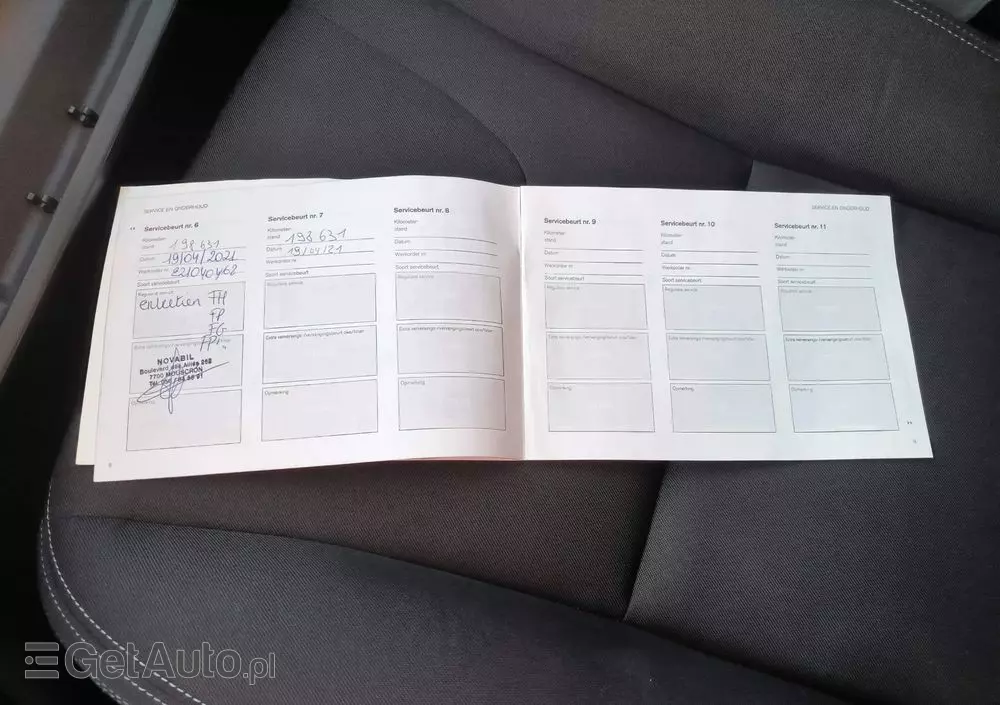 SERVICE EN ONDERHOUD
Servicebeurt nr. 6
Kilometer-
stand 198 631
Datum 19/04/2021
Werkorder nr
Soort servicebeurt
Reguliere service
entretien FH
FP
FG
FPY
Extra verversings-/vervangingsbeurt olie/filter
NOVABIL
Boulevard des Alliés 268
7700 MOUSCRON
Opmerking
6
Servicebeurt nr. 7
Kilometer-
stand 198 631
Datum 19/04/21
Werkorder nr
Soort servicebeurt
Reguliere service
Extra verversings-/vervangingsbeurt olie/filter
Opmerking
Servicebeurt nr. 8
Kilometer-
stand
Datum
Werkorder nr
Soort servicebeurt
Reguliere service
Extra verversings-/vervangingsbeurt olie/filter
Opmerking
SERVICE EN ONDERHOUD
Servicebeurt nr. 9
Kilometer-
stand
Datum
Werkorder nr
Soort servicebeurt
Reguliere service
Extra verversings-/vervangingsbeurt olie/filter
Opmerking
Servicebeurt nr. 10
Kilometer-
stand
Datum
Werkorder nr
Soort servicebeurt
Reguliere service
Extra verversings-/vervangingsbeurt olie/filter
Opmerking
Servicebeurt nr. 11
Kilometer-
stand
Datum
Werkorder nr
Soort servicebeurt
Reguliere service
Extra verversings-/vervangingsbeurt olie/filter
Opmerking
GetAuto.pl